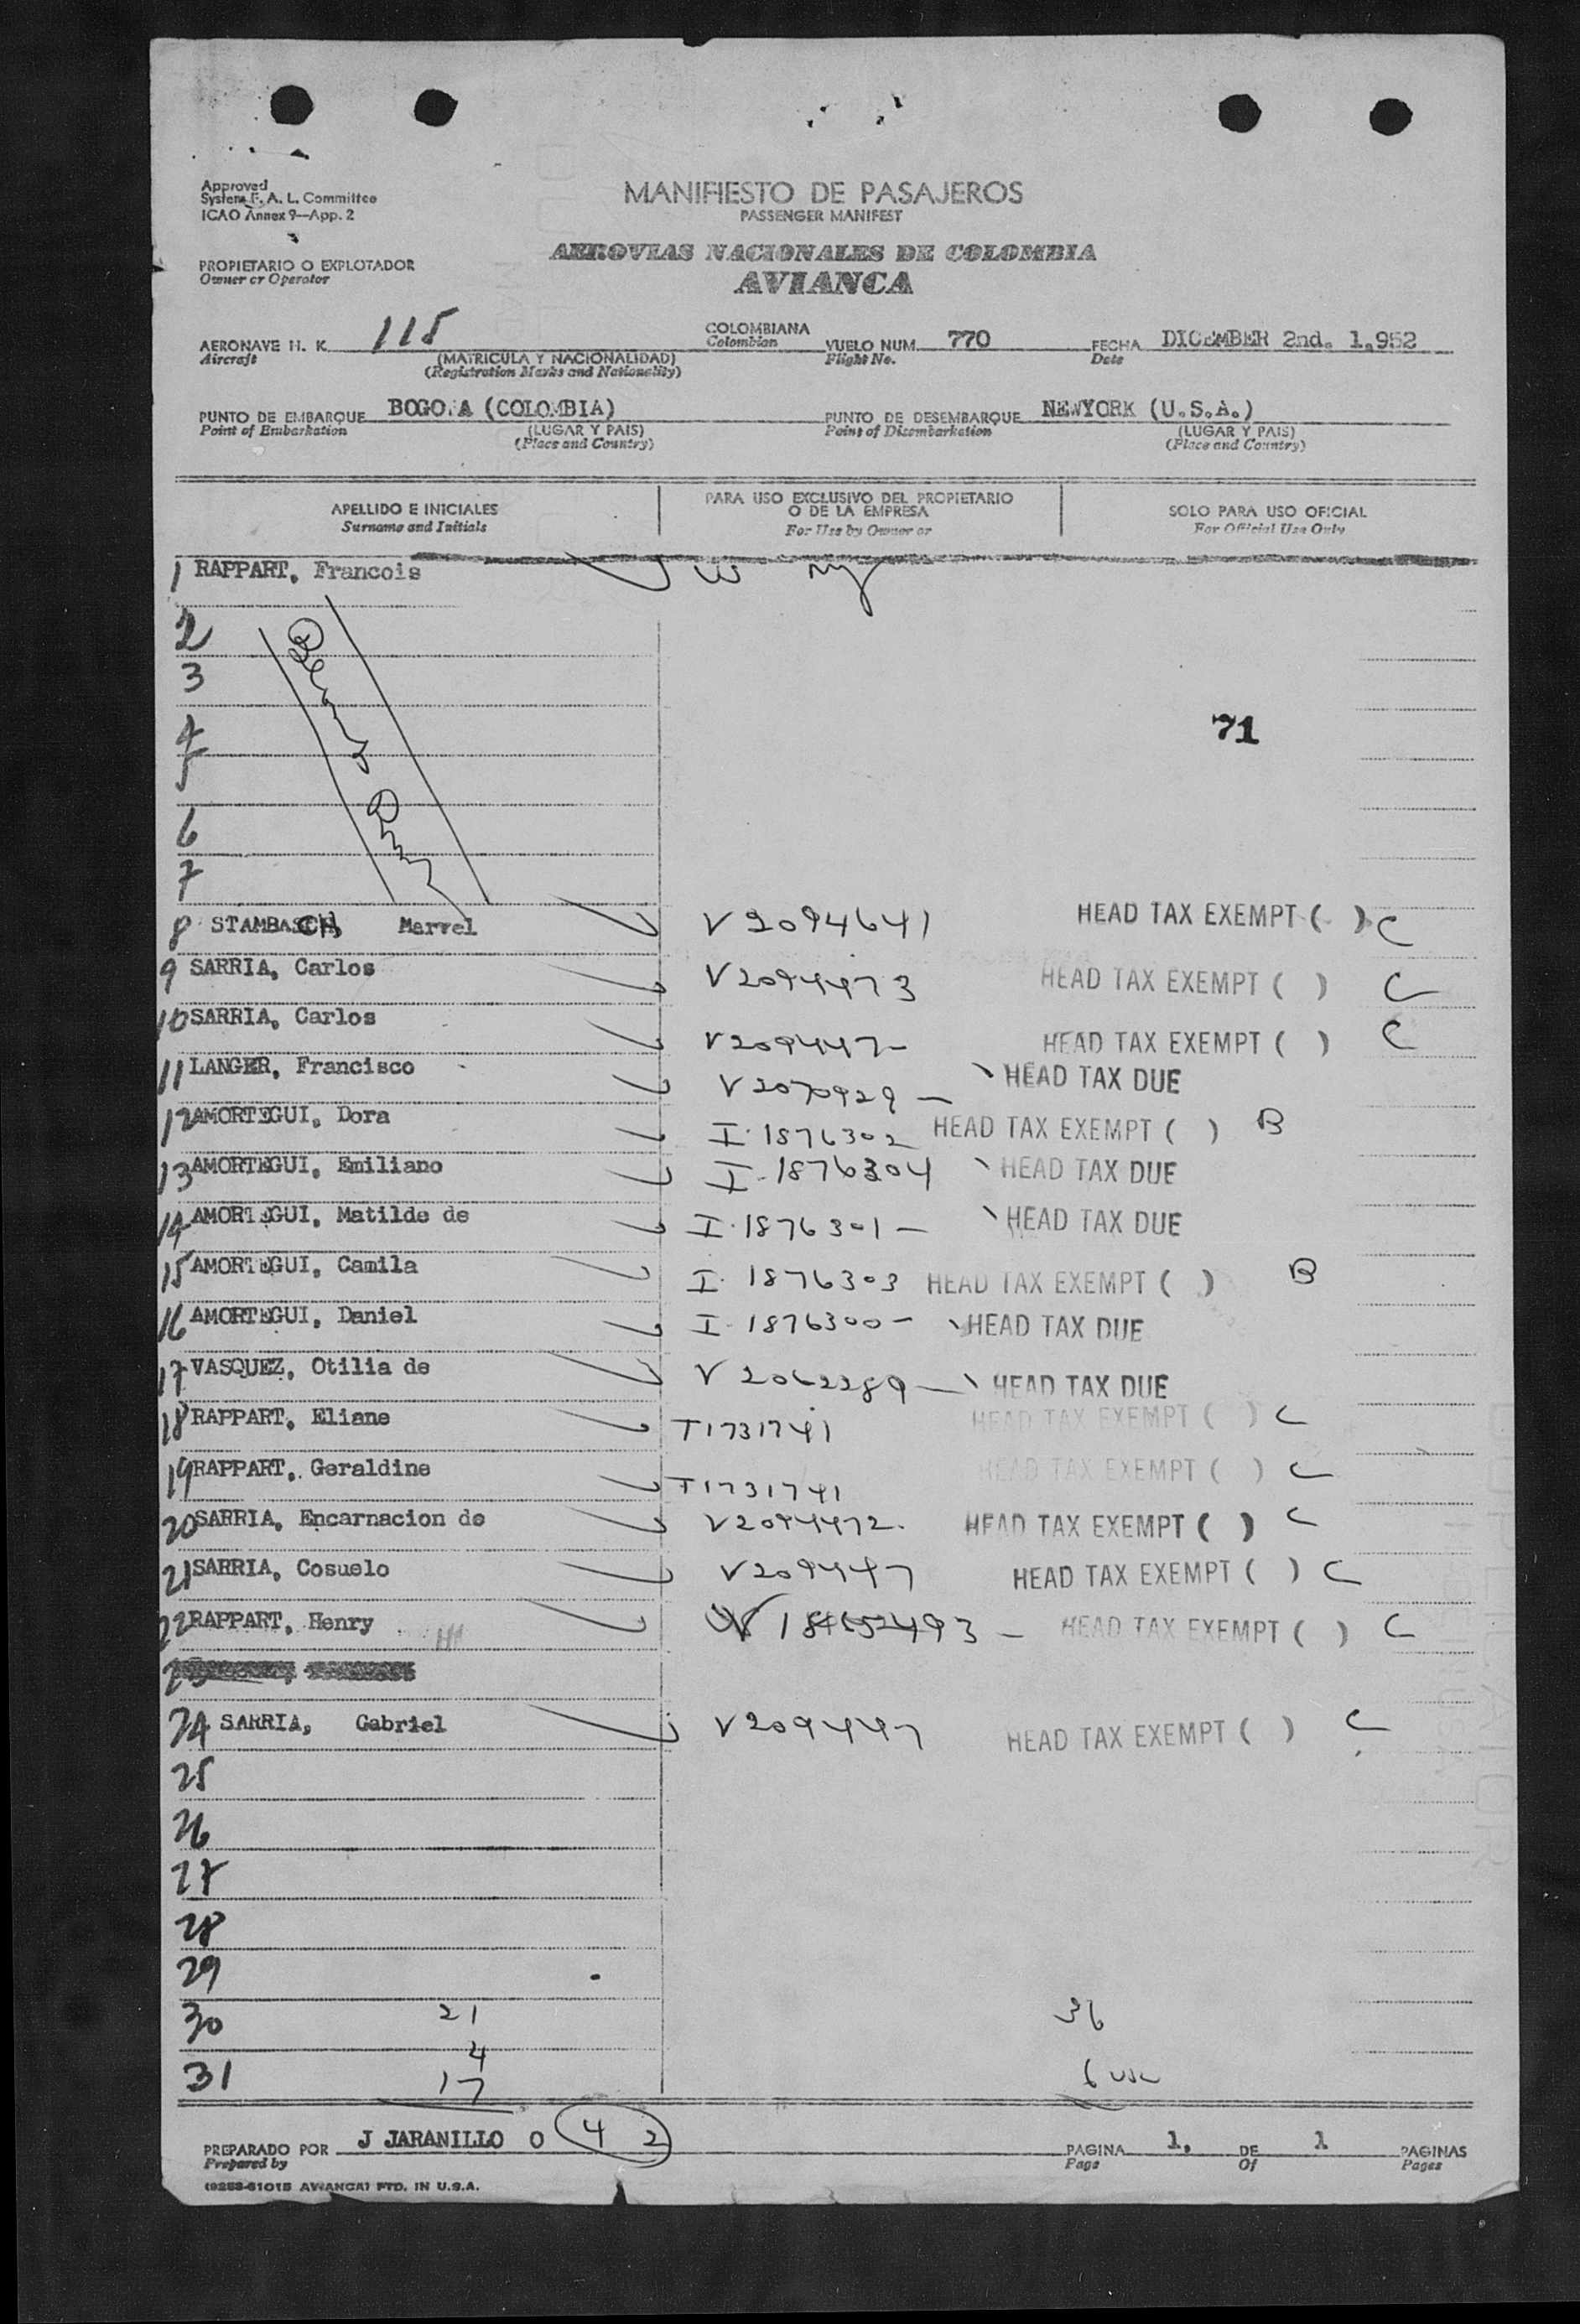 Approved
System F. A. L. Committee
ICAO Annex 9—App. 2
MANIFIESTO DE PASAJEROS
PASSENGER MANIFEST
AEROVIAS NACIONALES DE COLOMBIA
AVIANCA
PROPIETARIO O EXPLOTADOR
Owner or Operator
AERONAVE H. K. 115 COLOMBIANA VUELO NUM. 770 FECHA DICEMBER 2nd. 1.952
Aircraft (MATRICULA Y NACIONALIDAD) Colombian Flight No. Date
(Registration Marks and Nationality)
PUNTO DE EMBARQUE BOGO.A (COLOMBIA) PUNTO DE DESEMBARQUE NEWYORK (U.S.A.)
Point of Embarkation (LUGAR Y PAIS) Point of Disembarkation (LUGAR Y PAIS)
(Place and Country) (Place and Country)
APELLIDO E INICIALES PARA USO EXCLUSIVO DEL PROPIETARIO O DE LA EMPRESA SOLO PARA USO OFICIAL
Surname and Initials For Use by Owner or For Official Use Only
1 RAPPART, Francois
2
3
71
4
5
6
7
8 STAMBASCH Marvel V 2094641 HEAD TAX EXEMPT ( ) C
9 SARRIA, Carlos V2094473 HEAD TAX EXEMPT ( ) C
10 SARRIA, Carlos V209447 HEAD TAX EXEMPT ( ) C
11 LANGER, Francisco V 2070929 — HEAD TAX DUE
12 AMORTEGUI, Dora I·1876302 HEAD TAX EXEMPT ( ) B
13 AMORTEGUI, Emiliano I-1876304 HEAD TAX DUE
14 AMORTEGUI, Matilde de I·1876301 — HEAD TAX DUE
15 AMORTEGUI, Camila I· 1876303 HEAD TAX EXEMPT ( ) B
16 AMORTEGUI, Daniel I- 1876300 - HEAD TAX DUE
17 VASQUEZ, Otilia de V 2062289 — HEAD TAX DUE
18 RAPPART, Eliane T1731741 HEAD TAX EXEMPT ( ) C
19 RAPPART, Geraldine T1731741 HEAD TAX EXEMPT ( ) C
20 SARRIA, Encarnacion de V2094472. HEAD TAX EXEMPT ( ) C
21 SARRIA, Cosuelo V209447 HEAD TAX EXEMPT ( ) C
22 RAPPART, Henry HEAD TAX EXEMPT ( ) C
23
24 SARRIA, Gabriel V209447 HEAD TAX EXEMPT ( ) C
25
26
27
28
29
30 21 36
4
31 17 6 USC
PREPARADO POR J JARANILLO O 42 PAGINA 1. DE 1 PAGINAS
Prepared by Page Of Pages
(9288-6101B AVIANCA) PTD. IN U.S.A.